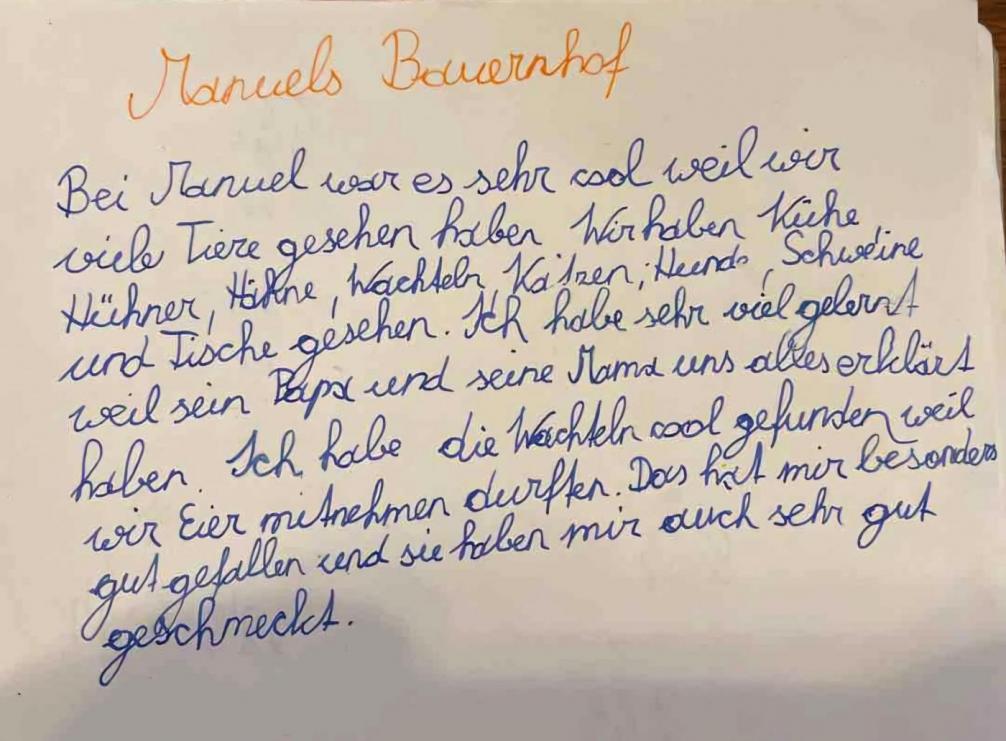 Manuels Bauernhof
Bei Manuel war es sehr cool weil wir
viele Tiere gesehen haben Wir haben Kühe,
Hühner, Hähne, Wachteln, Katzen, Hunde, Schweine
und Tische gesehen. Ich habe sehr viel gelernt
weil sein Papa und seine Mama uns alles erklärt
haben. Ich habe die Wachteln cool gefunden weil
wir Eier mitnehmen durften. Das hat mir besonders
gut gefallen und sie haben mir auch sehr gut
geschmeckt.